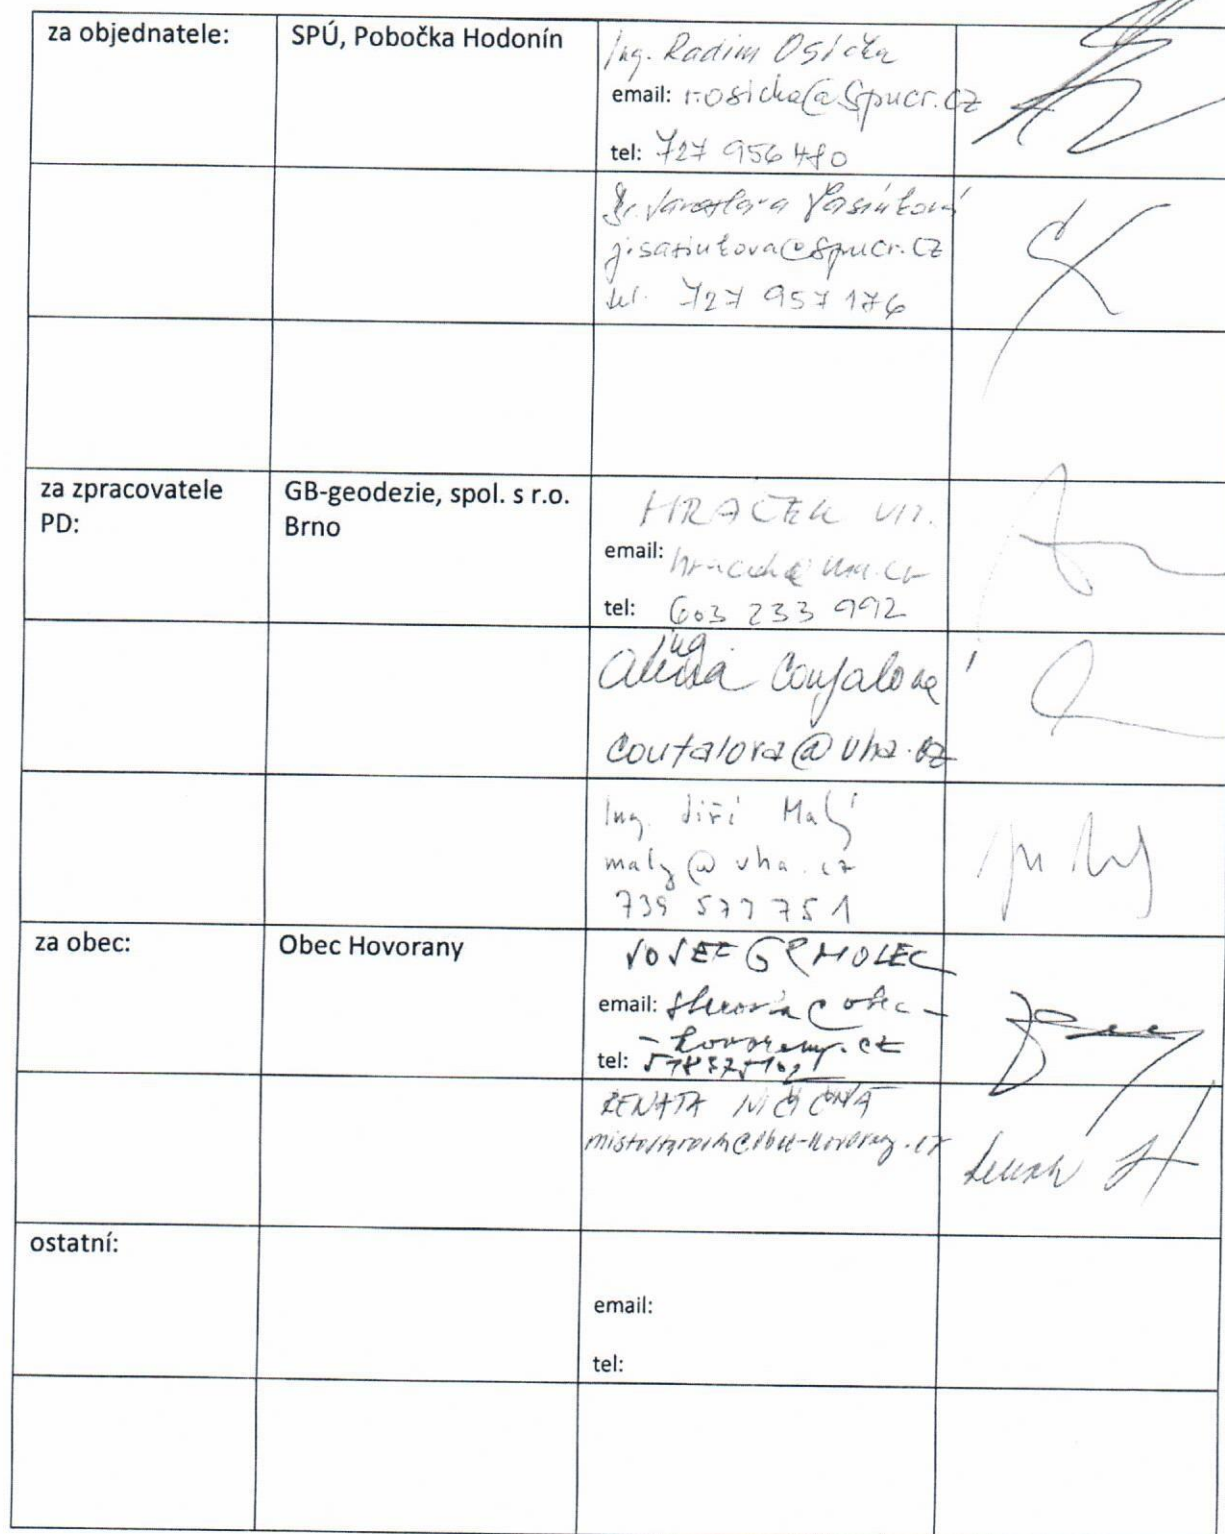 za objednatele:
SPÚ, Pobočka Hodonín
Ing. Radim Osička
email: r.osicka@spucr.cz
tel: 727 956 480
j.sasinkova@spucr.cz
tel. 727 957 176
za zpracovatele
PD:
GB-geodezie, spol. s r.o.
Brno
HRAČEK
email:
tel: 603 233 992
ing
Alena Coufalová
coufalova@vha.cz
Ing. Jiří Malý
maly@vha.cz
739 577 751
za obec:
Obec Hovorany
JOSEF GRMOLEC
email: starosta@obec-
-hovorany.cz
tel:
RENATA
mistostarosta@obec-hovorany.cz
ostatní:
email:
tel: